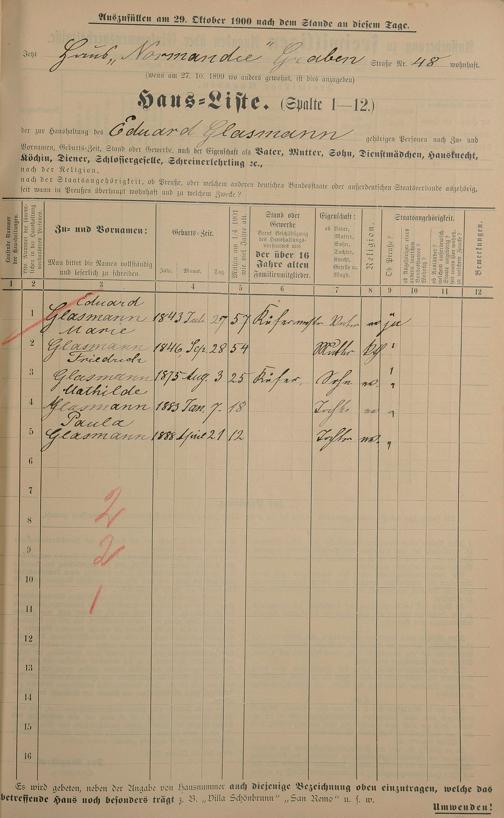 Auszufüllen am 29. Oktober 1900 nach dem Stande an diesem Tage.
Jetzt Haus „Normandie“ Graben Straße Nr. 48 wohnhaft.
(wenn am 27. 10. 1899 wo anders gewohnt, ist dies anzugeben)
Haus-Liste. (Spalte 1—12.)
der zur Haushaltung des Eduard Glasmann gehörigen Personen nach Zu- und
Vornamen, Geburts-Zeit, Stand oder Gewerbe, nach der Eigenschaft als Vater, Mutter, Sohn, Dienstmädchen, Hausknecht,
Köchin, Diener, Schlossergeselle, Schreinerlehrling ꝛc.,
nach der Religion,
nach der Staatsangehörigkeit, ob Preuße, oder welchem anderen deutschen Bundesstaate oder außerdeutschen Staatsverbande angehörig,
seit wann in Preußen überhaupt wohnhaft und zu welchem Zwecke?
Zu- und Vornamen:
Man bittet die Namen vollständig
und leserlich zu schreiben.
Geburts-Zeit.
Jahr. Monat. Tag.
Stand oder
Gewerbe
der über 16
Jahre alten
Familienmitglieder.
Eigenschaft:
ob Vater,
Mutter,
Sohn,
Tochter,
Knecht,
Geselle u.
Magd.
Religion.
Staatsangehörigkeit.
Ob Preuße?
Bemerkungen.
1 2 3 4 5 6 7 8 9 10 11 12
Eduard
1 Glasmann 1843 27 57 Küfermeister Vater ev ja
Marie
2 Glasmann 1846 Sep. 28 54 Mutter "
Friedrich
3 Glasmann 1875 Aug. 3 25 Küfer, Sohn ev. "
Mathilde
4 Glasmann 1883 Jan. 7. 18 Tochter ev "
Paula
5 Glasmann 1888 April 21 12 Tochter ev. "
6
7
2
8
9
2
10
11
1
12
13
14
15
16
Es wird gebeten, neben der Angabe von Hausnummer auch diejenige Bezeichnung oben einzutragen, welche das
betreffende Haus noch besonders trägt z. B. „Villa Schönbrunn“ „San Remo“ u. s. w.
Umwenden!